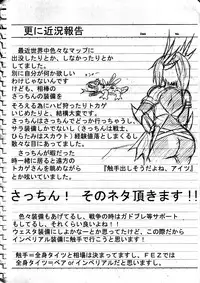 更に近況報告
最近世界中色々なマップに
出没したりとか、しなかったりとか
してました。
別に自分が何か欲しい
わけじゃないんです
けど、相棒の
さっちんの装備を
そろえる為にハピ狩ったりトカゲ
いじめたりと、結構大変です。
さっちんはさっちんでどっか行っちゃうし、
サラ装備しかでないし(さっちんは戦士、
ひらたみはスカウト)経験値落としまくるわ、
散々な目にあってました。
さっちんが暇だった
時一緒に居ると遠方の
トカゲさんをみながら
とか呟いていました。
『触手出しそうだよね、アイツ』
さっちん!そのネタ頂きます!!
色々装備もあげてるし、戦争の時はガドブレ等サポート
もしてるし、それくらい良いよね!!
ウェスタ装備にしよかなーとか思ってたけど、この際だから
インペリアル装備に触手で行こうと思います!
触手=全身タイツと相場は決まってますし、FEZでは
全身タイツ=ベア or インペリアルだと思いますし。